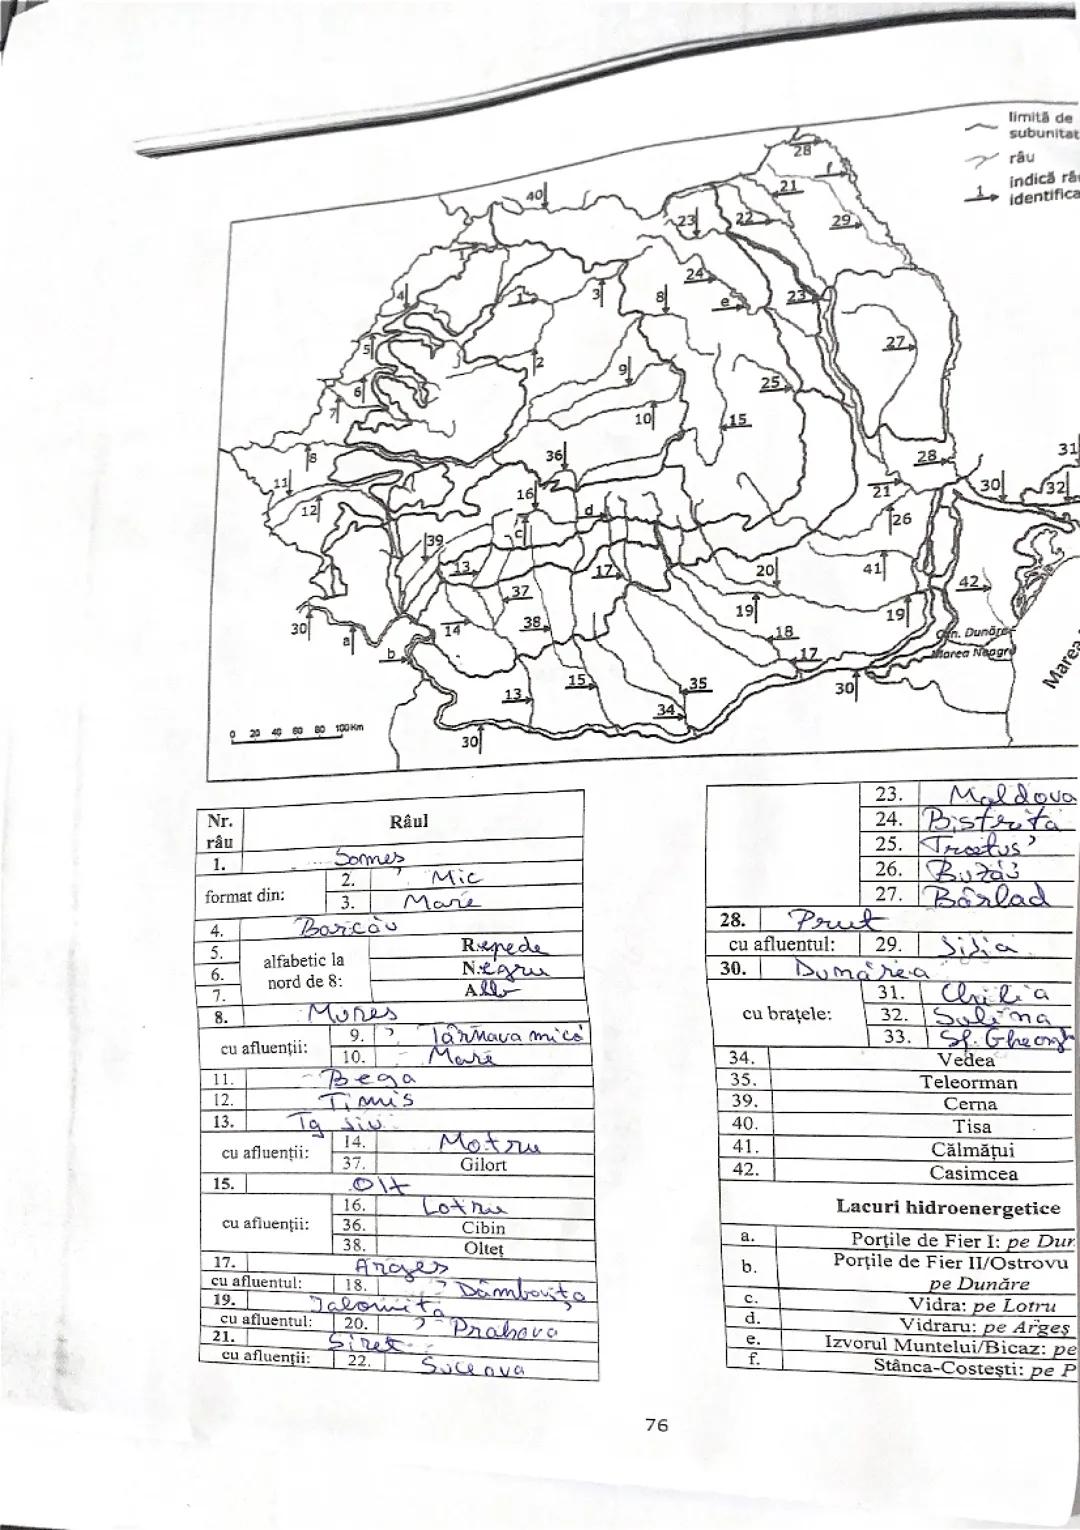 limită de
subunitat
râu
1 indică râ
identifica
40
28
f
21
23
22
29
1
24
4
1
3
8
e
23
5
27
2
9
6
25
7
10
15
8
36
28
31
11
16
21
30
32
12
d
26
c
39
13
17
20
41
42
37
19
19
30
14
38
18
Can. Dunăre-
a
b
17
Marea Neagră
Marea
15
35
30
13
34
0 20 40 60 80 100 Km
30
Nr. râu Râul
1. Someș
format din: 2. " Mic
3. Mare
4. Barcău
5. alfabetic la nord de 8: Repede
6. Negru
7. Alb
8. Mureș
cu afluenții: 9. Târnava mică
10. " Mare
11. Bega
12. Timiș
13. Tg Jiu
cu afluenții: 14. Motru
37. Gilort
15. Olt
cu afluenții: 16. Lotru
36. Cibin
38. Olteț
17. Argeș
cu afluentul: 18. Dâmbovița
19. Ialomița
cu afluentul: 20. Prahova
21. Siret
cu afluenții: 22. Suceava
23. Moldova
24. Bistrița
25. Trotuș
26. Buzău
27. Bârlad
28. Prut
cu afluentul: 29. Jijia
30. Dunărea
cu brațele: 31. Chilia
32. Sulina
33. Sf. Gheorgh
34. Vedea
35. Teleorman
39. Cerna
40. Tisa
41. Călmățui
42. Casimcea
Lacuri hidroenergetice
a. Porțile de Fier I: pe Dun
b. Porțile de Fier II/Ostrovu
pe Dunăre
c. Vidra: pe Lotru
d. Vidraru: pe Argeș
e. Izvorul Muntelui/Bicaz: pe
f. Stânca-Costești: pe P
76